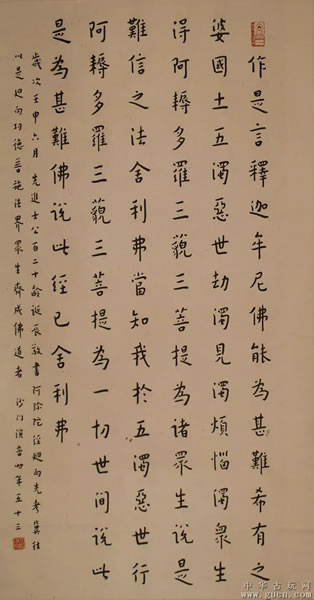 作是言釋迦牟尼佛能為甚難希有之
婆國土五濁惡世劫濁見濁煩惱濁眾生
得阿耨多羅三藐三菩提為諸眾生說是
難信之法舍利弗當知我於五濁惡世行
阿耨多羅三藐三菩提為一切世間說此
是為甚難佛說此經已舍利弗
歲次壬申六月先進士公百二十齡誕辰敬書阿彌陀經廻向先考冀往
以是廻向功德普施法界眾生齊成佛道者 沙門演音年五十三
中华古玩网
www.gucn.com